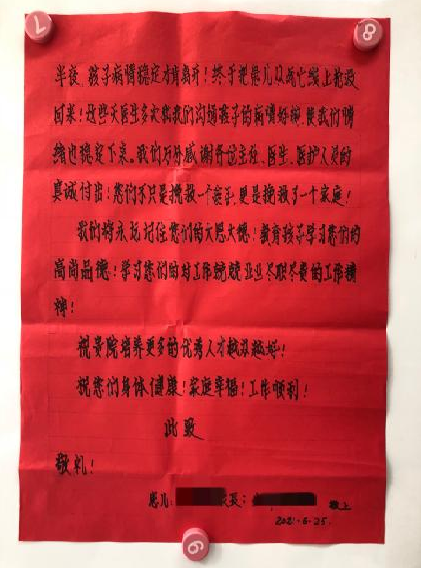 7
8
半夜,孩子病情稳定才肯离开!终于把患儿从死亡线上抢救
回来!这些天医生多次和我们沟通孩子的病情好转,使我们情
绪也稳定下来。我们万分感谢各位主任、医生、医护人员的
真诚付出!您们不只是挽救一个孩子,更是挽救了一个家庭!
我们将永远记住您们的大恩大德!教育孩子学习您们的
高尚品德!学习您们的对工作兢兢业业尽职尽责的工作精
神!
祝贵院培养更多的优秀人才越办越好!
祝您们身体健康!家庭幸福!工作顺利!
此致
敬礼!
患儿: 家长: 敬上
2021.6.25
6